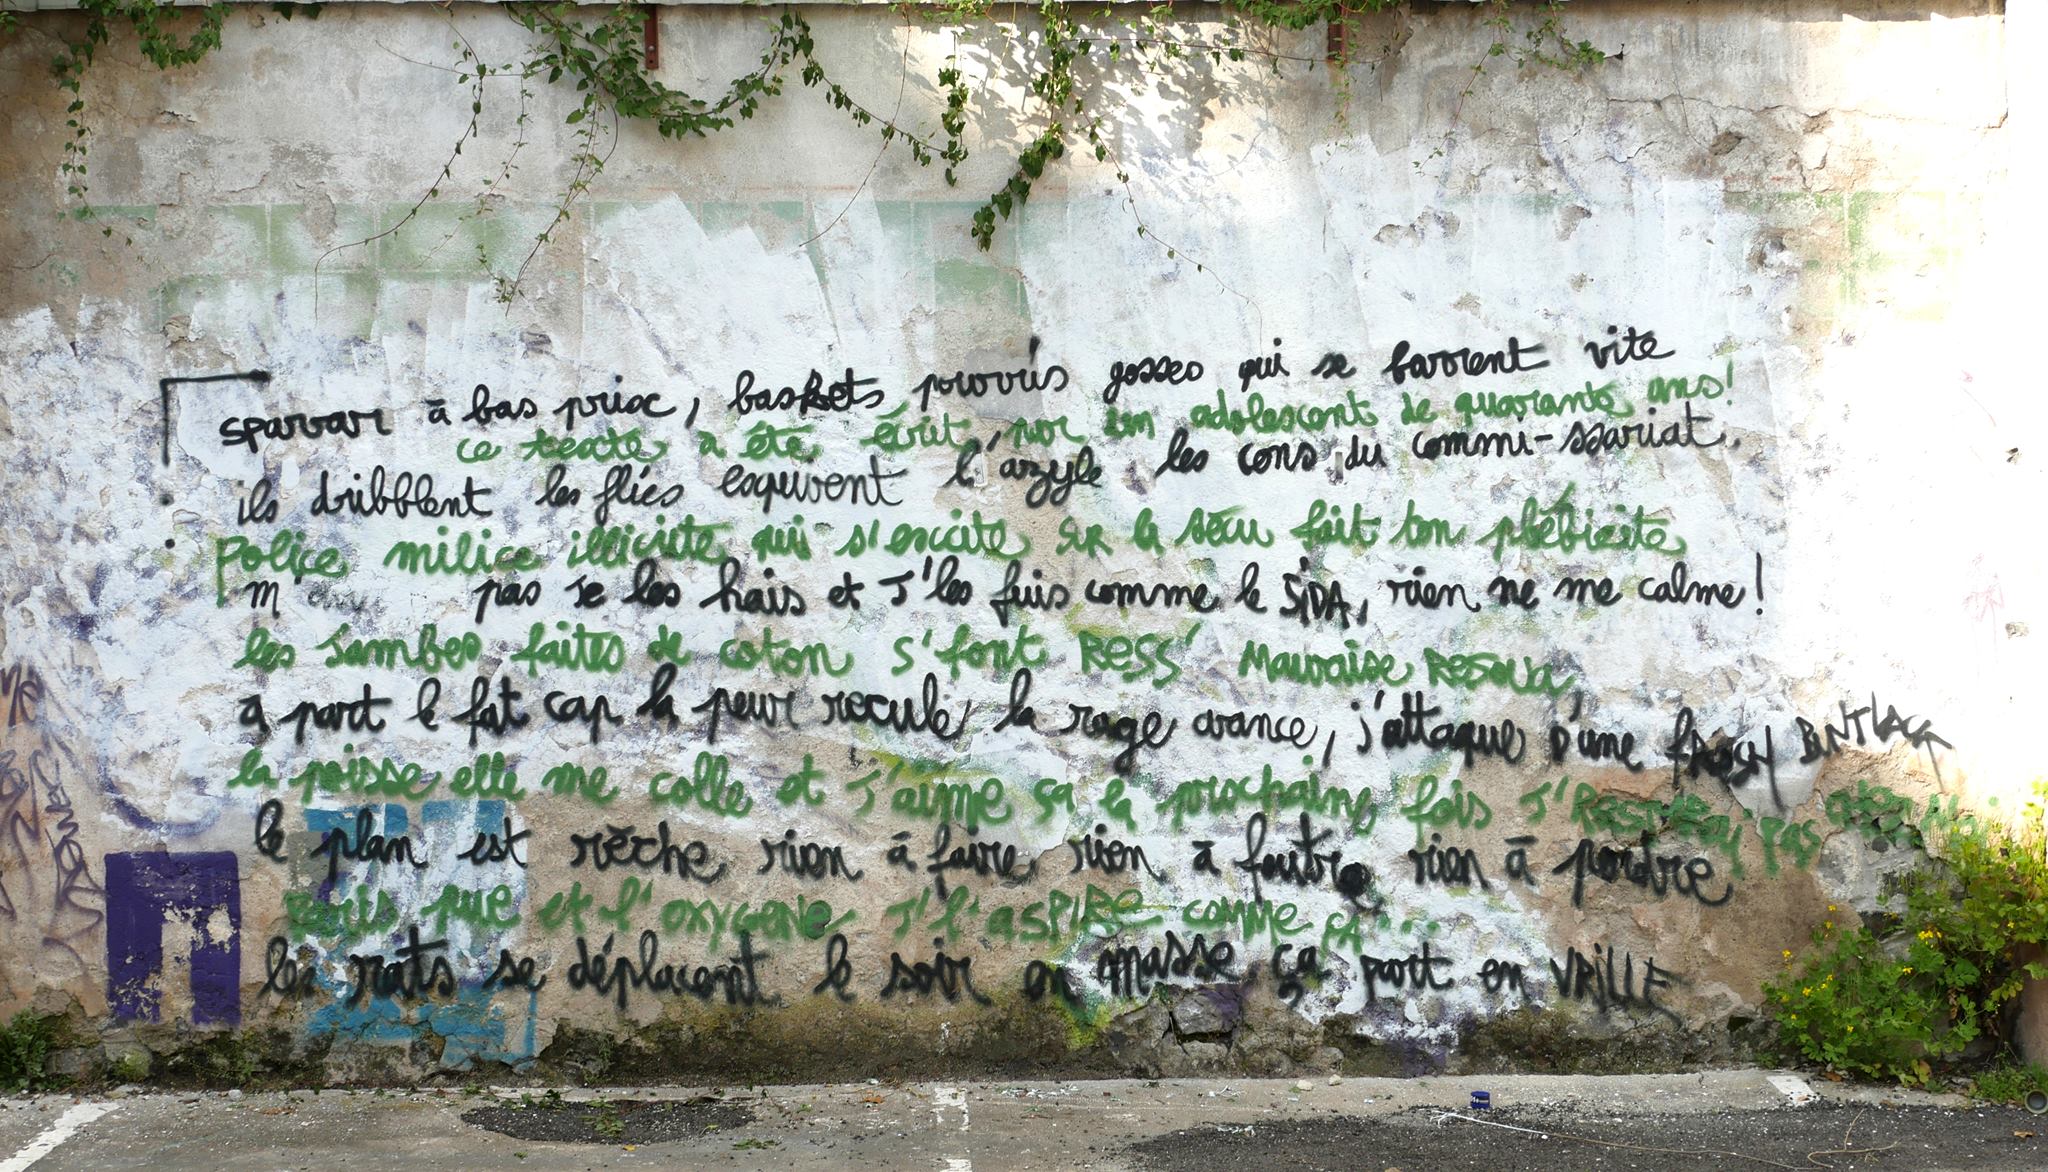 sparvar à bas prix, baskets pourris gosses qui se barrent vite
ce texte a été écrit, par un adolescent de quarante ans!
ils dribblent les flics esquivent l'azyle les cons du commi-ssariat,
Police milice illicite qui s'excite SUR la sécu fait ton plébicite
m' pas je les hais et J'les fuis comme le SIDA, rien ne me calme!
les Jambes faites de coton s'font RESS' Mauvaise RESOVA,
à part le fat cap la peur recule, la rage avance, j'attaque D'une FROSCH BUNTLACK
la poisse elle me colle et J'aime ça la prochaine fois J' pas
le plan est rèche rien à faire rien à foutre rien à perdre
Paris pue et l'OXYGENE J'l'aSPIRE comme ça...
les rats se déplacent le soir en masse ça part en VRILLE